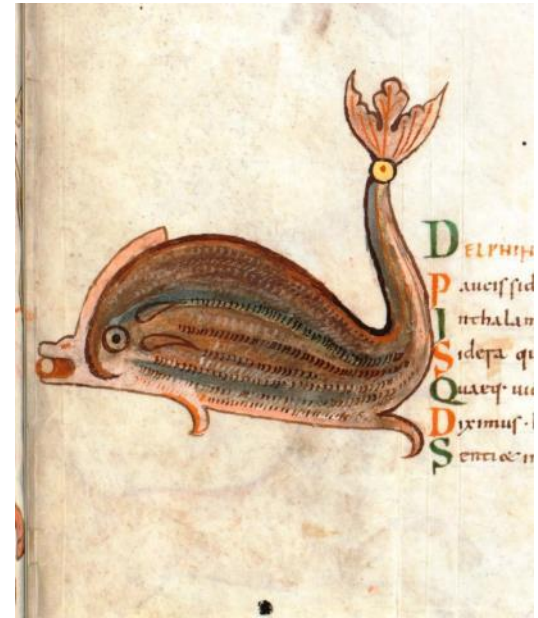 DELPHIN
Paucis sid
Inthalam
Sidera qu
Quaeq· uic
Diximus·
Senti & in